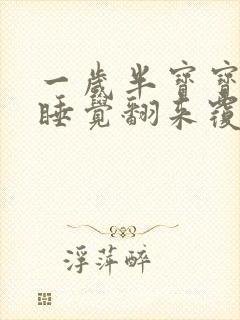 一歲半寶寶
睡覺翻來覆
浮萍醉